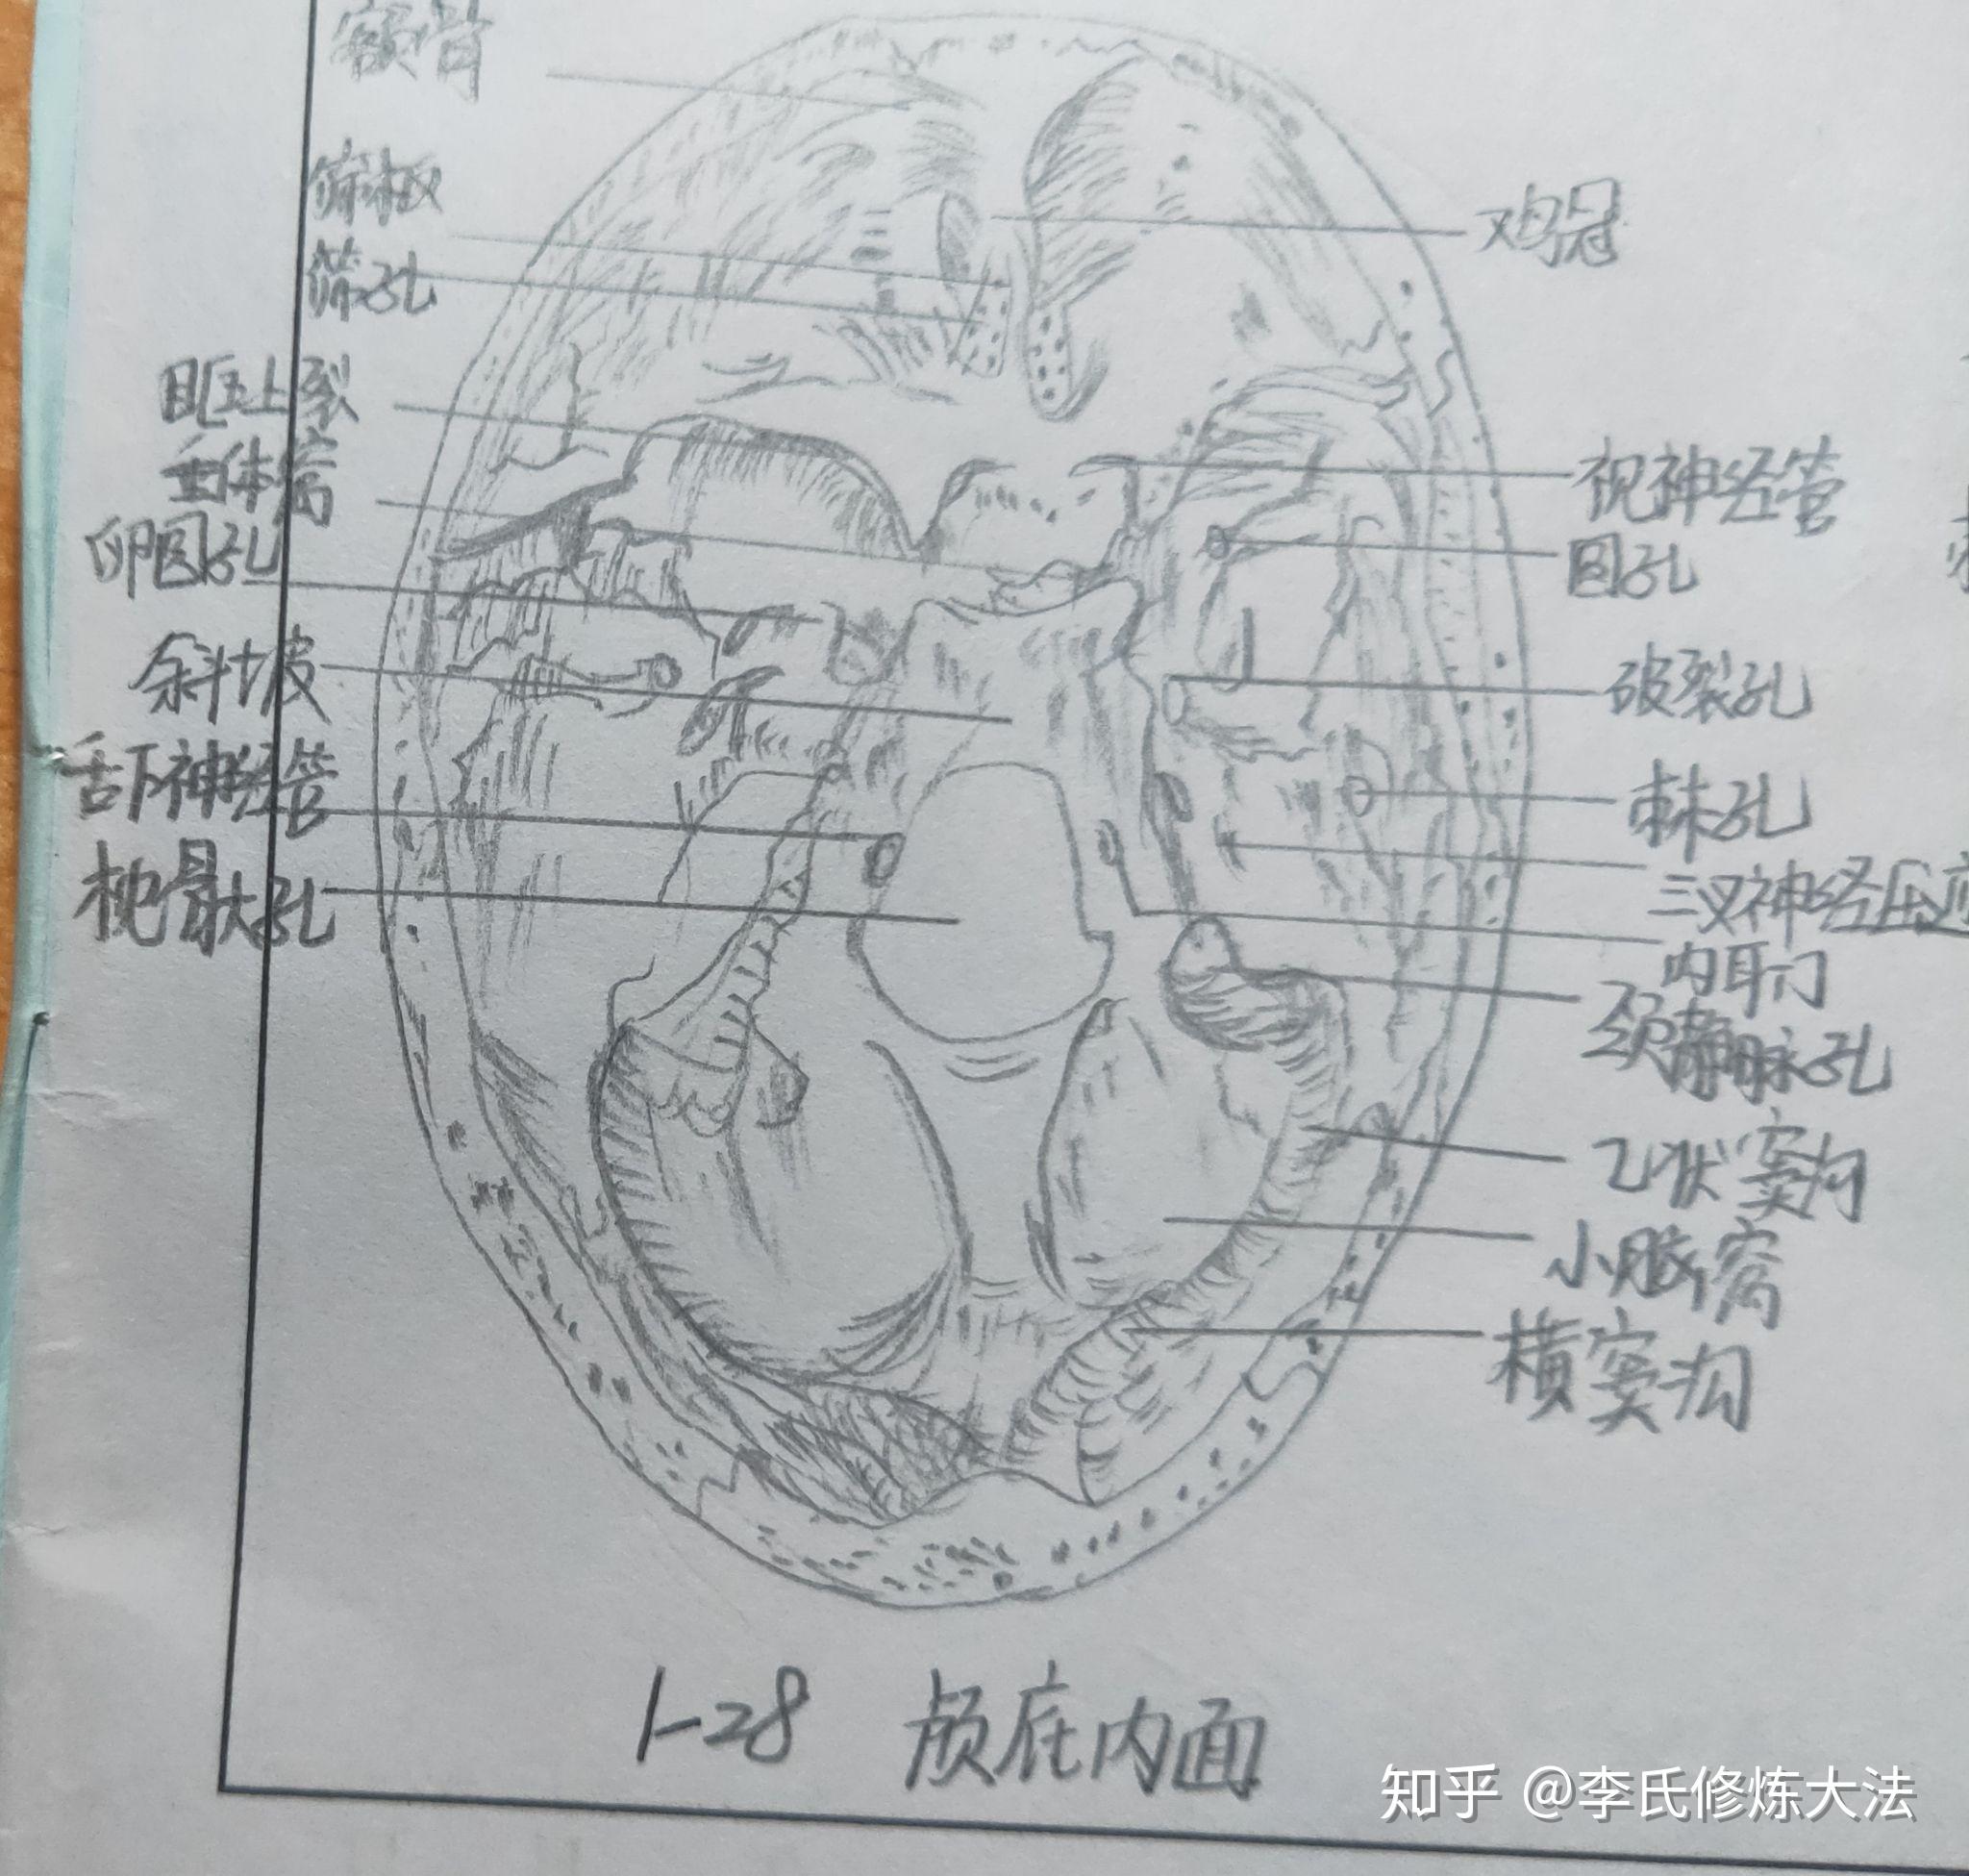 额骨
筛板
筛孔
眶上裂
垂体窝
卵圆孔
斜坡
舌下神经管
枕骨大孔
鸡冠
视神经管
圆孔
破裂孔
棘孔
三叉神经压迹
内耳门
颈静脉孔
乙状窦沟
小脑窝
横窦沟
1-28 颅底内面
知乎 @李氏修炼大法